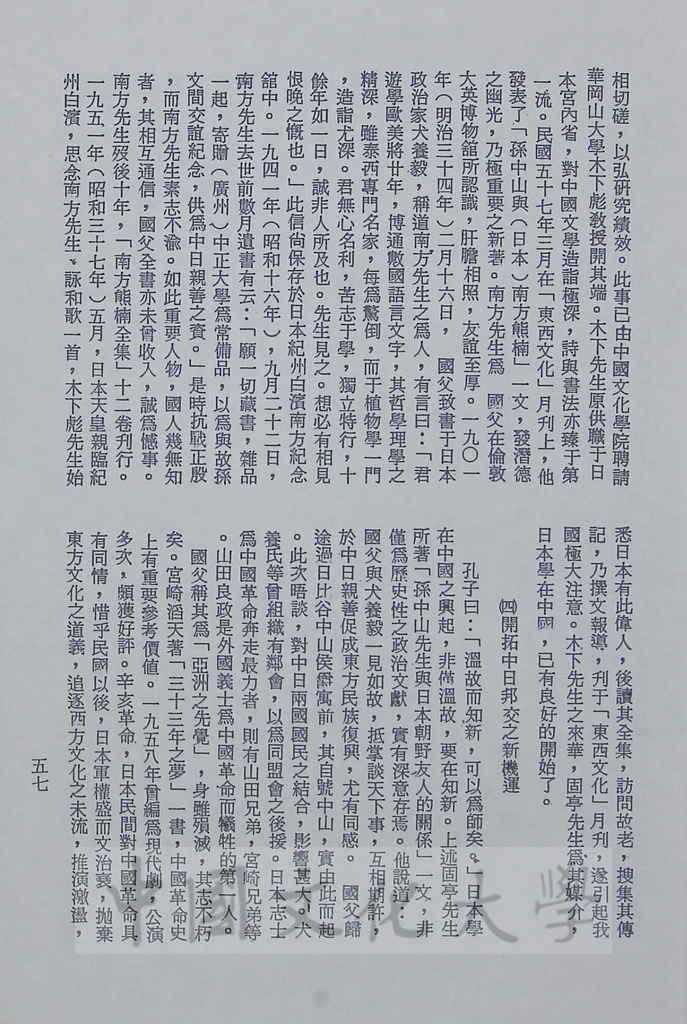 相切磋，以弘硏究績效。此事已由中國文化學院聘請
華岡山大學木下彪敎授開其端。木下先生原供職于日
本宮內省，對中國文學造詣極深，詩與書法亦臻于第
一流。民國五十七年三月在「東西文化」月刋上，他
發表了「孫中山與（日本）南方熊楠」一文，發潛德
之幽光，乃極重要之新著。南方先生爲　國父在倫敦
大英博物舘所認識，肝膽相照，友誼至厚。一九〇一
年（明治三十四年）二月十六日，　國父致書于日本
政治家犬養毅，稱道南方先生之爲人，有言曰：「君
遊學歐美將廿年，博通數國語言文字，其哲學理學之
精深，雖泰西專門名家，每爲驚倒，而于植物學一門
，造詣尤深。君無心名利，苦志于學，獨立特行，十
餘年如一日，誠非人所及也。先生見之。想必有相見
恨晚之慨也。」此信尙保存於日本紀州白濱南方紀念
舘中。一九四一年（昭和十六年），九月二十二日，
南方先生去世前數月遺書有云：「願一切藏書，雜品
一起，寄贈（廣州）中正大學爲常備品，以爲與故孫
文間交誼紀念，供爲中日親善之資。」是時抗戰正殷
，而南方先生素志不渝。如此重要人物，國人幾無知
者，其相互通信，國父全書亦未曾收入，誠爲憾事。
南方先生歿後十年，「南方熊楠全集」十二卷刋行。
一九五一年（昭和三十七年）五月，日本天皇親臨紀
州白濱，思念南方先生，詠和歌一首，木下彪先生始
悉日本有此偉人，後讀其全集，訪問故老，搜集其傳
記，乃撰文報導，刋于「東西文化」月刋，遂引起我
國極大注意。木下先生之來華，固亭先生爲其媒介，
日本學在中國，已有良好的開始了。
㈣開拓中日邦交之新機運
孔子曰：「溫故而知新，可以爲師矣。」日本學
在中國之興起，非僅溫故，要在知新。上述固亭先生
所著「孫中山先生與日本朝野友人的關係」一文，非
僅爲歷史性之政治文獻，實有深意存焉。他說道：
國父與犬養毅一見如故，抵掌談天下事，互相期許，
於中日親善促成東方民族復興，尤有同感。　國父歸
途過日比谷中山侯爵寓前，其自號中山，實由此而起
。此次晤談，對中日兩國國民之結合，影響甚大。犬
養氏等曾組織有鄰會，以爲同盟會之後援。日本志士
爲中國革命奔走最力者，則有山田兄弟，宮崎兄弟等
。山田良政是外國義士爲中國革命而犧牲的第一人。
國父稱其爲「亞洲之先覺」，身雖殞滅，其志不朽
矣。宮崎滔天著「三十三年之夢」一書，中國革命史
上有重要參考價值。一九五八年曾編爲現代劇，公演
多次，頗獲好評。辛亥革命，日本民間對中國革命具
有同情，惜乎民國以後，日本軍權盛而文治衰，拋棄
東方文化之道義，追逐西方文化之末流，推演激盪，
五七
中國文化大學